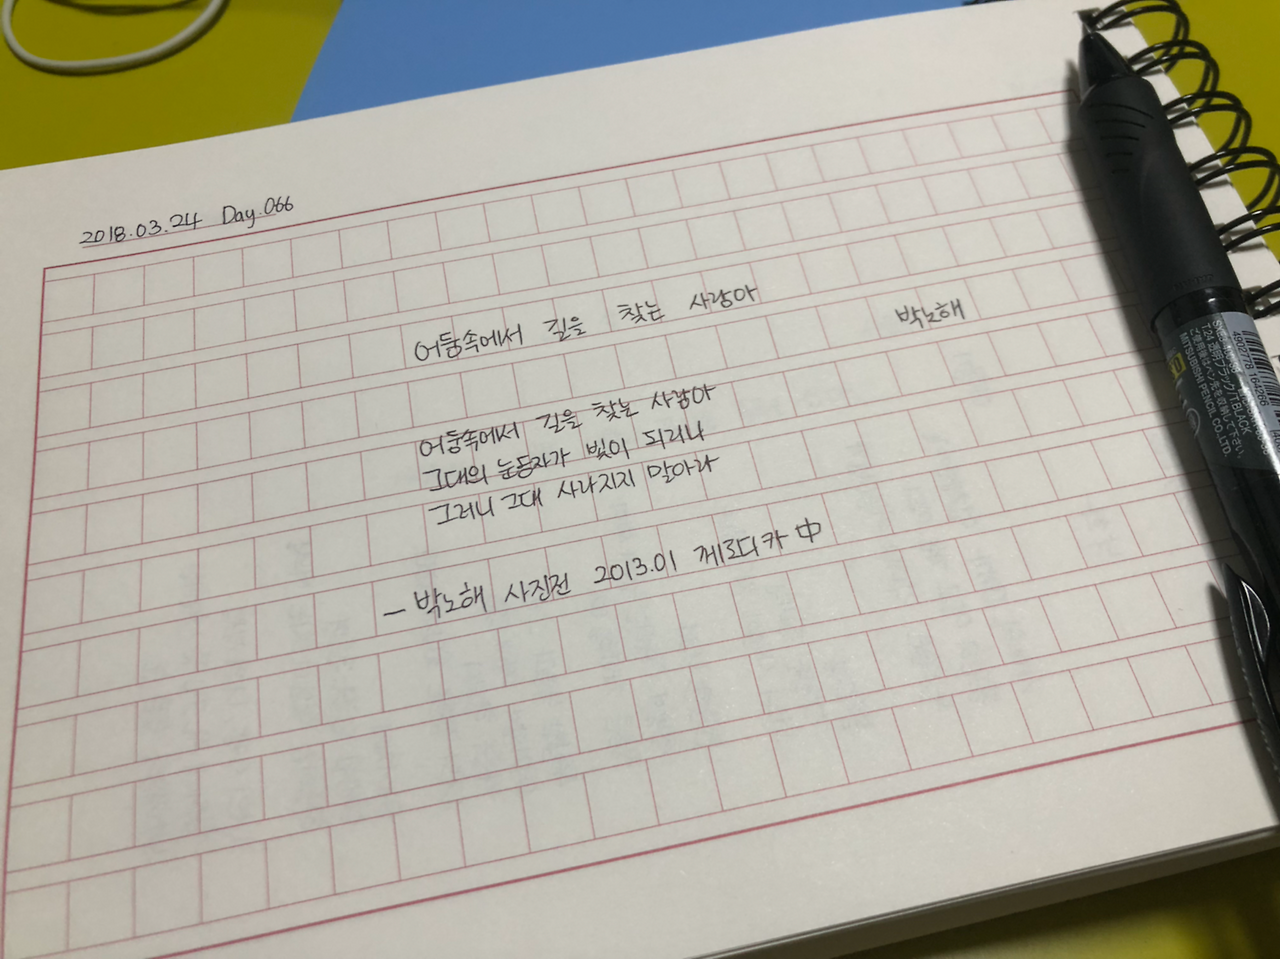 2018.03.24 Day.066
어둠속에서 길을 찾는 사람아
박노해
어둠속에서 길을 찾는 사람아
그대의 눈동자가 빛이 되리니
그러니 그대 사라지지 말아라
- 박노해 사진전 2013.01 께로티카 中
MITSUBISHI PENCIL CO.,LTD.